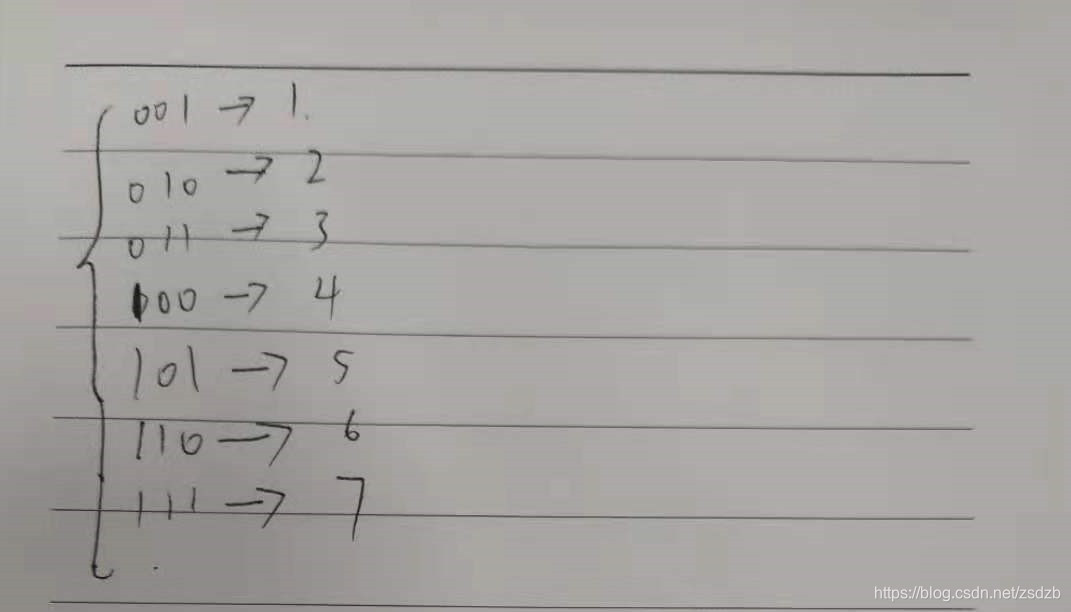 001 → 1.
010 → 2
011 → 3
100 → 4
101 → 5
110 → 6
111 → 7
https://blog.csdn.net/zsdzb